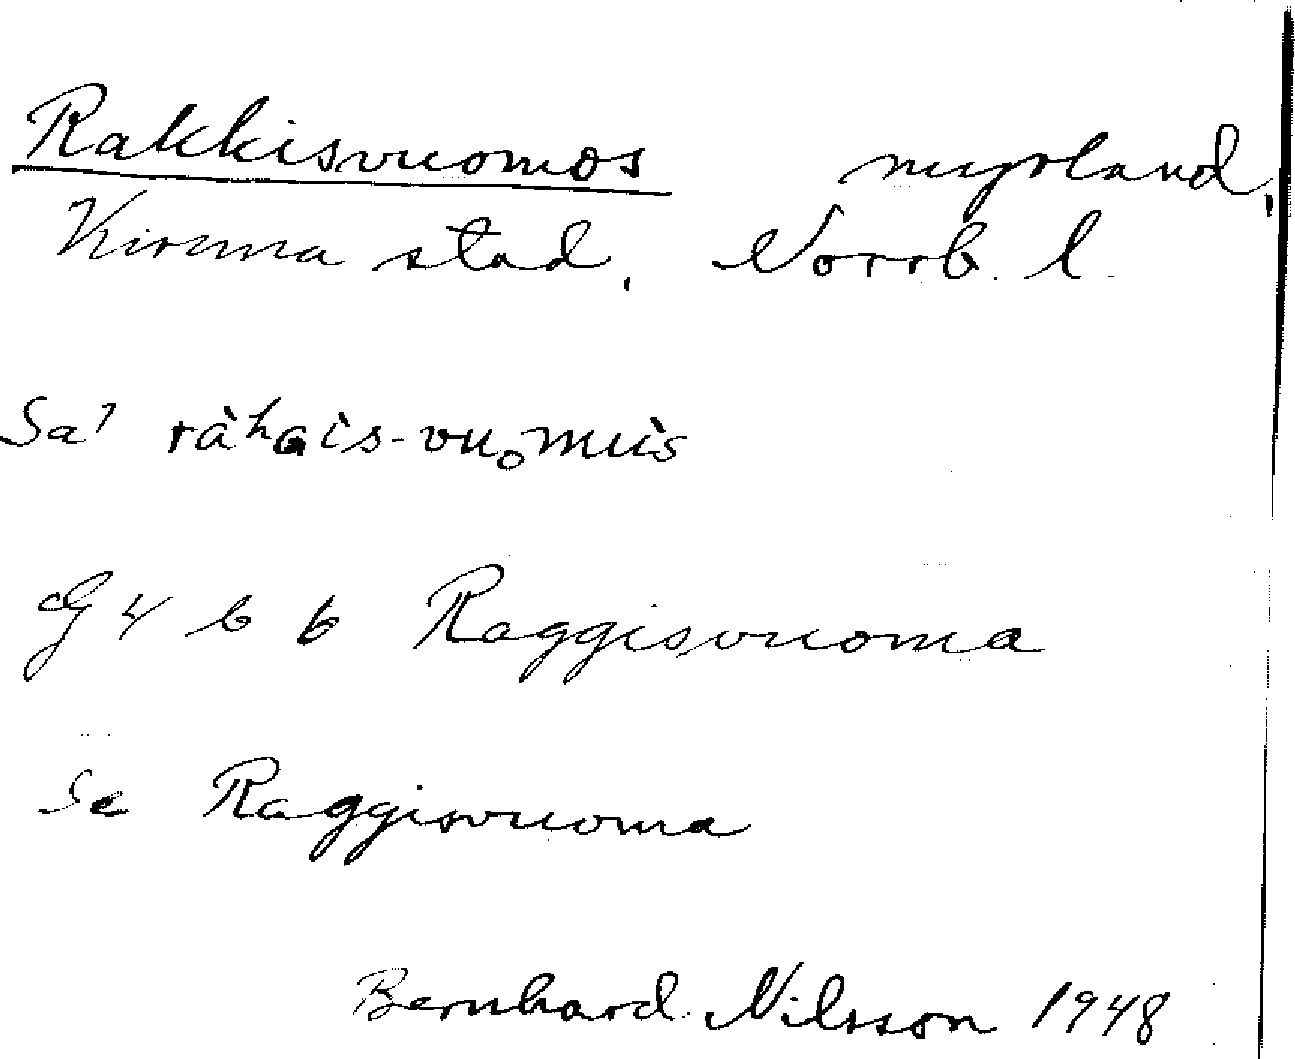 Rakkisvuomos myrland,
Kiruna stad, Norrb. l.
Sa' ràʰɢìs-vuo̥mùs
G 4 b b Raggisvuoma
Se Raggisvuoma
Bernhard Nilsson 1948